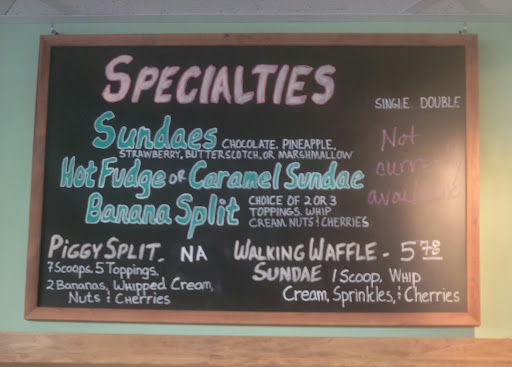 SPECIALTIES
SINGLE DOUBLE
Sundaes CHOCOLATE, PINEAPPLE,
STRAWBERRY, BUTTERSCOTCH, OR MARSHMALLOW
Not
Hot Fudge OR Caramel Sundae
Banana Split CHOICE OF 2 OR 3
TOPPINGS. WHIP
CREAM NUTS & CHERRIES
PIGGY SPLIT. NA
7 SCOOPS. 5 TOPPINGS.
2 BANANAS, WHIPPED CREAM,
NUTS & CHERRIES
WALKING WAFFLE - 5 78
SUNDAE 1 SCOOP, WHIP
CREAM, SPRINKLES, & CHERRIES